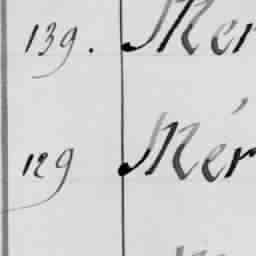 139. Mer
129 Mér